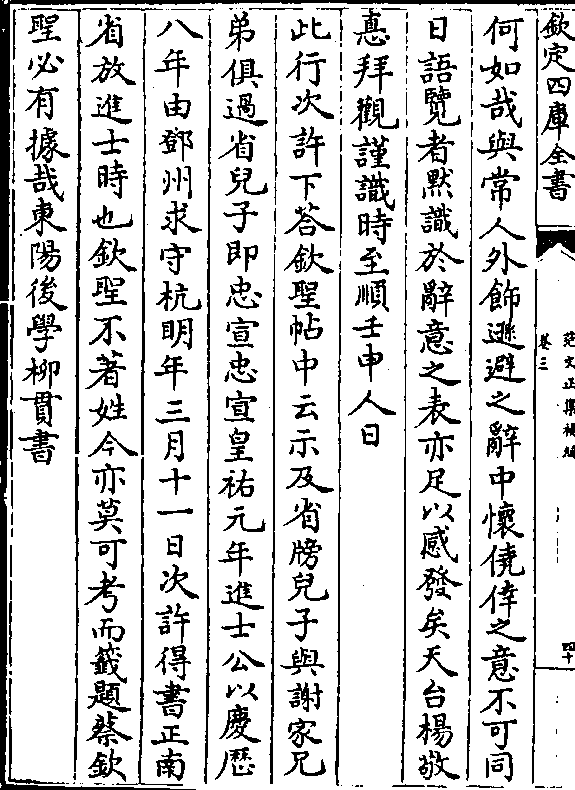 欽定四庫全書
范文正集補編
卷三
四十
何如哉與常人外飾遜避之辭中懷僥倖之意不可同
日語覽者默識於辭意之表亦足以感發矣天台楊敬
悳拜觀謹識時至順壬申人日
此行次許下荅欽聖帖中云示及省牓兒子與謝家兄
弟俱過省兒子即忠宣忠宣皇祐元年進士公以慶厯
八年由鄧州求守杭明年三月十一日次許得書正南
省放進士時也欽聖不著姓今亦莫可考而籖題蔡欽
聖必有據哉東陽後學柳貫書